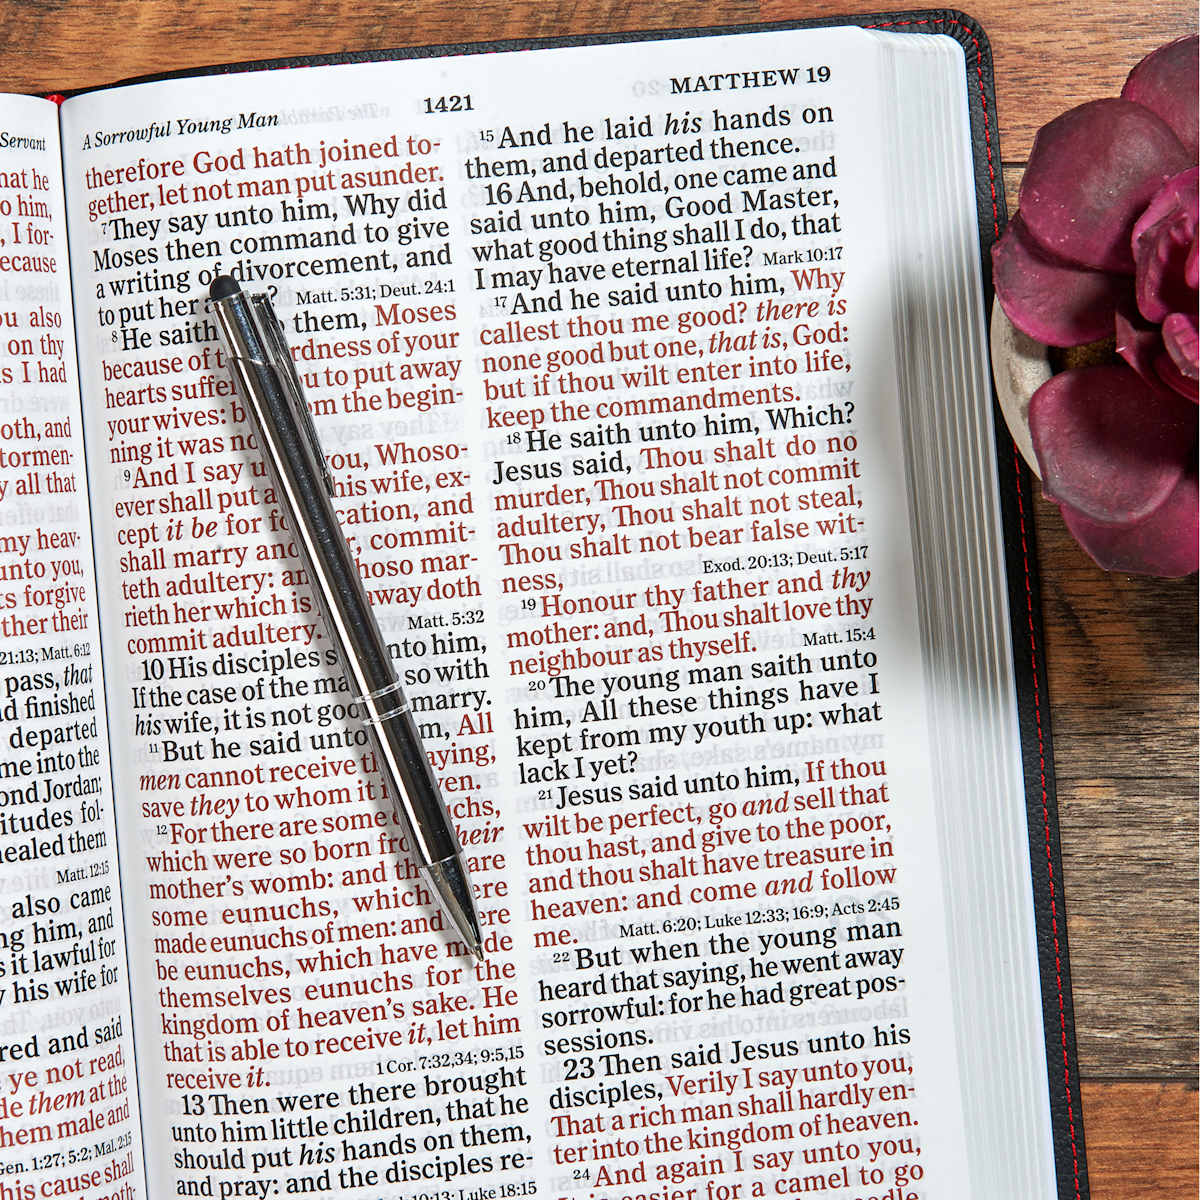 Servant
hat he
o him,
, I for-
ecause
ou also
on thy
s I had
oth, and
tormen-
y all that
my heav-
unto you,
ts forgive
other their
21:13; Matt. 6:12
pass, that
d finished
departed
me into the
ond Jordan;
itudes fol-
healed them
Matt. 12:15
also came
ng him, and
s it lawful for
his wife for
red and said
ye not read,
de them at the
hem male and
Gen. 1:27; 5:2; Mal. 2:15
his cause shall
A Sorrowful Young Man 1421 MATTHEW 19
therefore God hath joined to-
gether, let not man put asunder.
7 They say unto him, Why did
Moses then command to give
a writing of divorcement, and
to put her ? Matt. 5:31; Deut. 24:1
8 He saith them, Moses
because of rdness of your
hearts suffe u to put away
your wives: b om the begin-
ning it was no
9 And I say u you, Whoso-
ever shall put a his wife, ex-
cept it be for fo cation, and
shall marry ano , commit-
teth adultery: an hoso mar-
rieth her which is away doth
commit adultery. Matt. 5:32
10 His disciples s nto him,
If the case of the ma so with
his wife, it is not goo marry.
11 But he said unto m, All
men cannot receive th aying,
save they to whom it i ven.
12 For there are some uchs,
which were so born fro heir
mother's womb: and th are
some eunuchs, which ere
made eunuchs of men: and ere
be eunuchs, which have made
themselves eunuchs for the
kingdom of heaven's sake. He
that is able to receive it, let him
receive it. 1 Cor. 7:32,34; 9:5,15
13 Then were there brought
unto him little children, that he
should put his hands on them,
and pray: and the disciples re-
10:13; Luke 18:15
15 And he laid his hands on
them, and departed thence.
16 And, behold, one came and
said unto him, Good Master,
what good thing shall I do, that
I may have eternal life? Mark 10:17
17 And he said unto him, Why
callest thou me good? there is
none good but one, that is, God:
but if thou wilt enter into life,
keep the commandments.
18 He saith unto him, Which?
Jesus said, Thou shalt do no
murder, Thou shalt not commit
adultery, Thou shalt not steal,
Thou shalt not bear false wit-
ness, Exod. 20:13; Deut. 5:17
19 Honour thy father and thy
mother: and, Thou shalt love thy
neighbour as thyself. Matt. 15:4
20 The young man saith unto
him, All these things have I
kept from my youth up: what
lack I yet?
21 Jesus said unto him, If thou
wilt be perfect, go and sell that
thou hast, and give to the poor,
and thou shalt have treasure in
heaven: and come and follow
me. Matt. 6:20; Luke 12:33; 16:9; Acts 2:45
22 But when the young man
heard that saying, he went away
sorrowful: for he had great pos-
sessions.
23 Then said Jesus unto his
disciples, Verily I say unto you,
That a rich man shall hardly en-
ter into the kingdom of heaven.
24 And again I say unto you,
It is easier for a camel to go